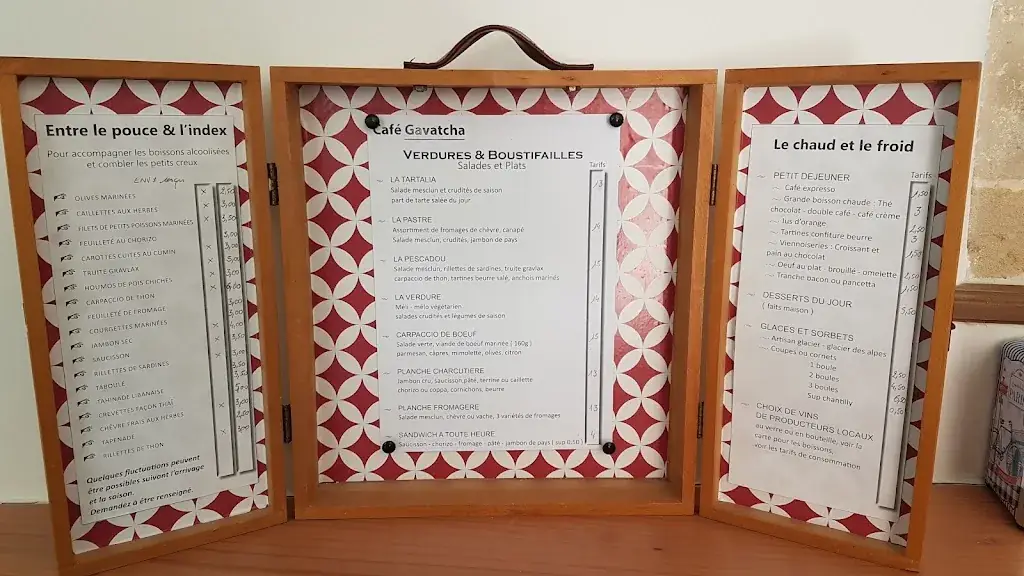 Entre le pouce & l'index
Pour accompagner les boissons alcoolisées
et combler les petits creux
OLIVES MARINÉES
CAILLETTES AUX HERBES
FILETS DE PETITS POISSONS MARINÉES
FEUILLETÉ AU CHORIZO
CAROTTES CUITES AU CUMIN
TRUITE GRAVLAX
HOUMOS DE POIS CHICHES
CARPACCIO DE THON
FEUILLETÉ DE FROMAGE
COURGETTES MARINÉES
JAMBON SEC
SAUCISSON
RILLETTES DE SARDINES
TABOULÉ
TAHINADE LIBANAISE
CREVETTES FAÇON THAÏ
CHÈVRE FRAIS AUX HERBES
TAPENADE
RILLETTES DE THON
Quelques fluctuations peuvent
être possibles suivant l'arrivage
et la saison.
Demandez à être renseigné.
Café Gavatcha
VERDURES & BOUSTIFAILLES
Salades et Plats
Tarifs
~ LA TARTALIA
Salade mesclun et crudités de saison
part de tarte salée du jour
~ LA PASTRE
Assortiment de fromages de chèvre, canapé
Salade mesclun, crudités, jambon de pays
~ LA PESCADOU
Salade mesclun, rillettes de sardines, truite gravlax
carpaccio de thon, tartines beurre salé, anchois marinés
~ LA VERDURE
Méli - mélo végétarien
salades crudités et légumes de saison
~ CARPACCIO DE BOEUF
Salade verte, viande de boeuf marinée ( 160g )
parmesan, câpres, mimolette, olives, citron
~ PLANCHE CHARCUTIERE
Jambon cru, saucisson, pâté, terrine ou caillette
chorizo ou coppa, cornichons, beurre
13
~ PLANCHE FROMAGERE
Salade mesclun, chèvre ou vache, 3 variétés de fromages
13
~ SANDWICH A TOUTE HEURE
Saucisson - chorizo - fromage - pâté - jambon de pays ( sup 0,50 )
Le chaud et le froid
Tarifs
~ PETIT DEJEUNER
~ Café expresso
1,50
~ Grande boisson chaude : Thé
chocolat - double café - café crème
3
~ Jus d'orange
2,50
~ Tartines confiture beurre
3
~ Viennoiseries : Croissant et
pain au chocolat
~ Oeuf au plat - brouillé - omelette
~ Tranche bacon ou pancetta
~ DESSERTS DU JOUR
( faits maison )
~ GLACES ET SORBETS
~ Artisan glacier - glacier des alpes
~ Coupes ou cornets
1 boule
2 boules
3 boules
Sup chantilly
0,50
~ CHOIX DE VINS
DE PRODUCTEURS LOCAUX
au verre ou en bouteille, voir la
carte pour les boissons,
voir les tarifs de consommation